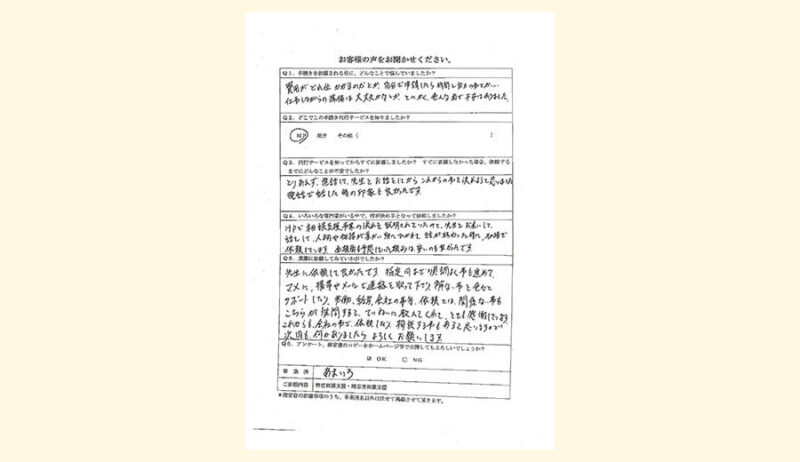 お客様の声をお聞かせください。
Q1．手続きを依頼される前に、どんなことで悩んでいましたか？
費用がどれ位かかるのかとか、自分で申請したら時間と労力の事とか…
仕事しながらの準備は大丈夫かなとか、とにかく、色んな面で不安はありました。
Q2．どこでこの手続き代行サービスを知りましたか？
HP 紹介 その他（ ）
Q3．代行サービスを知ってからすぐに依頼しましたか？ すぐに依頼しなかった場合、依頼する
までにどんなことが不安でしたか？
とりあえず、電話して、先生とお話をしてからこれからの事を決めようと思いました
電話で話した時の印象も良かったです
Q4．いろいろな専門家がいる中で、何が決め手となって依頼しましたか？
HPで相談支援事業の流れを説明されてたのと、先生とお会いして、
話をして、人柄や
依頼しています。
Q5．実際に依頼してみていかがでしたか？
先生に依頼して良かったです。指定日まで順調に事を進めて、
マメに、携帯やメールで連絡を取って下さり、
サポートしたり、労働、総務、会社の事等、依頼とは、関係ない事も
こちらが質問すると、ていねいに教えてくれ、とても感謝しています
これからも、会社の事で、依頼したり、相談する事もあると思いますので
次回も何かありましたら、よろしくお願いします
Q6．アンケート、指定書のコピーをホームページ等で公開してもよろしいでしょうか？
☑ OK ☐ NG
事務所 あまいろ
ご依頼内容 特定相談支援・障害児相談支援
＊指定書の記載事項のうち、事業所名以外は伏せて掲載させて頂きます。